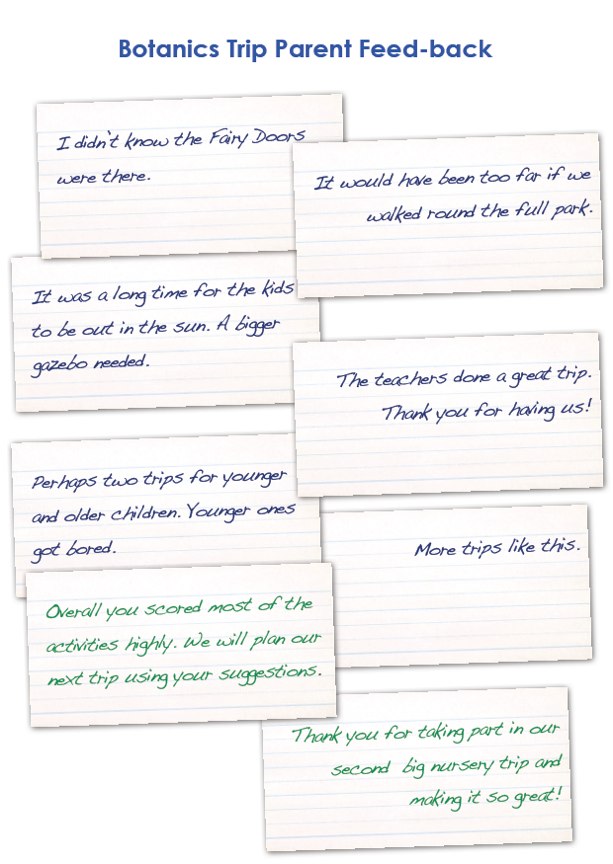 Botanics Trip Parent Feed-back
I didn't know the Fairy Doors
were there.
It would have been too far if we
walked round the full park.
It was a long time for the kids
to be out in the sun. A bigger
gazebo needed.
The teachers done a great trip.
Thank you for having us!
Perhaps two trips for younger
and older children. Younger ones
got bored.
More trips like this.
Overall you scored most of the
activities highly. We will plan our
next trip using your suggestions.
Thank you for taking part in our
second big nursery trip and
making it so great!